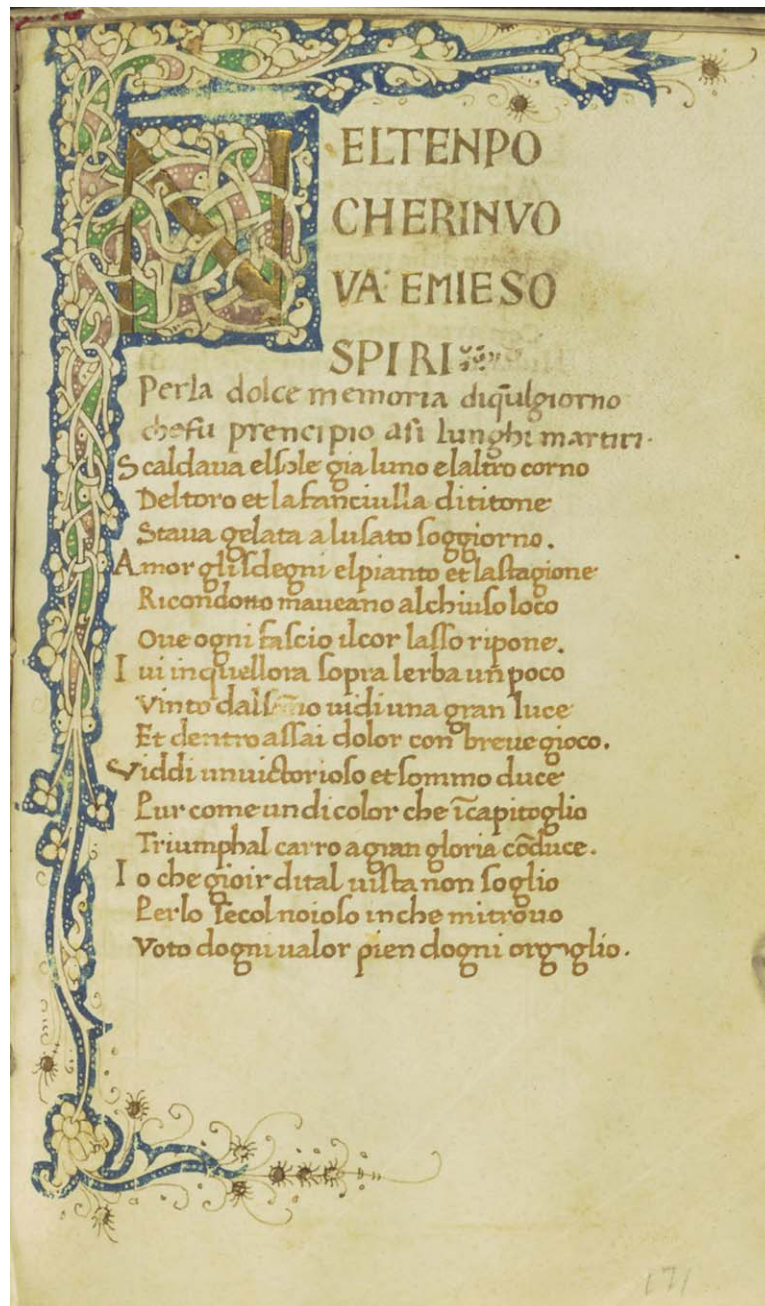 NELTENPO
CHERINVO
VA: EMIESO
SPIRI
Perla dolce memoria diq̃ulgiorno
chefu prencipio asi lunghi martiri.
Scaldaua elsole gia luno elaltro corno
Deltoro et la fanciulla dititone
Staua gelata a lusato soggiorno.
Amor glisdegni elpianto et lastagione
Ricondotto maueano alchiuso loco
Oue ogni fascio ilcor lasso ripone.
I ui inquellora sopra lerba un poco
Vinto dal uidi una gran luce
Et dentro assai dolor con breue gioco.
Viddi unuictorioso et sommo duce
Pur come un dicolor che ĩcapitoglio
Triumphal carro agran gloria cõduce.
I o che gioir dital uista non soglio
Perlo secol noioso inche mitrouo
Voto dogni ualor pien dogni orgoglio.
171